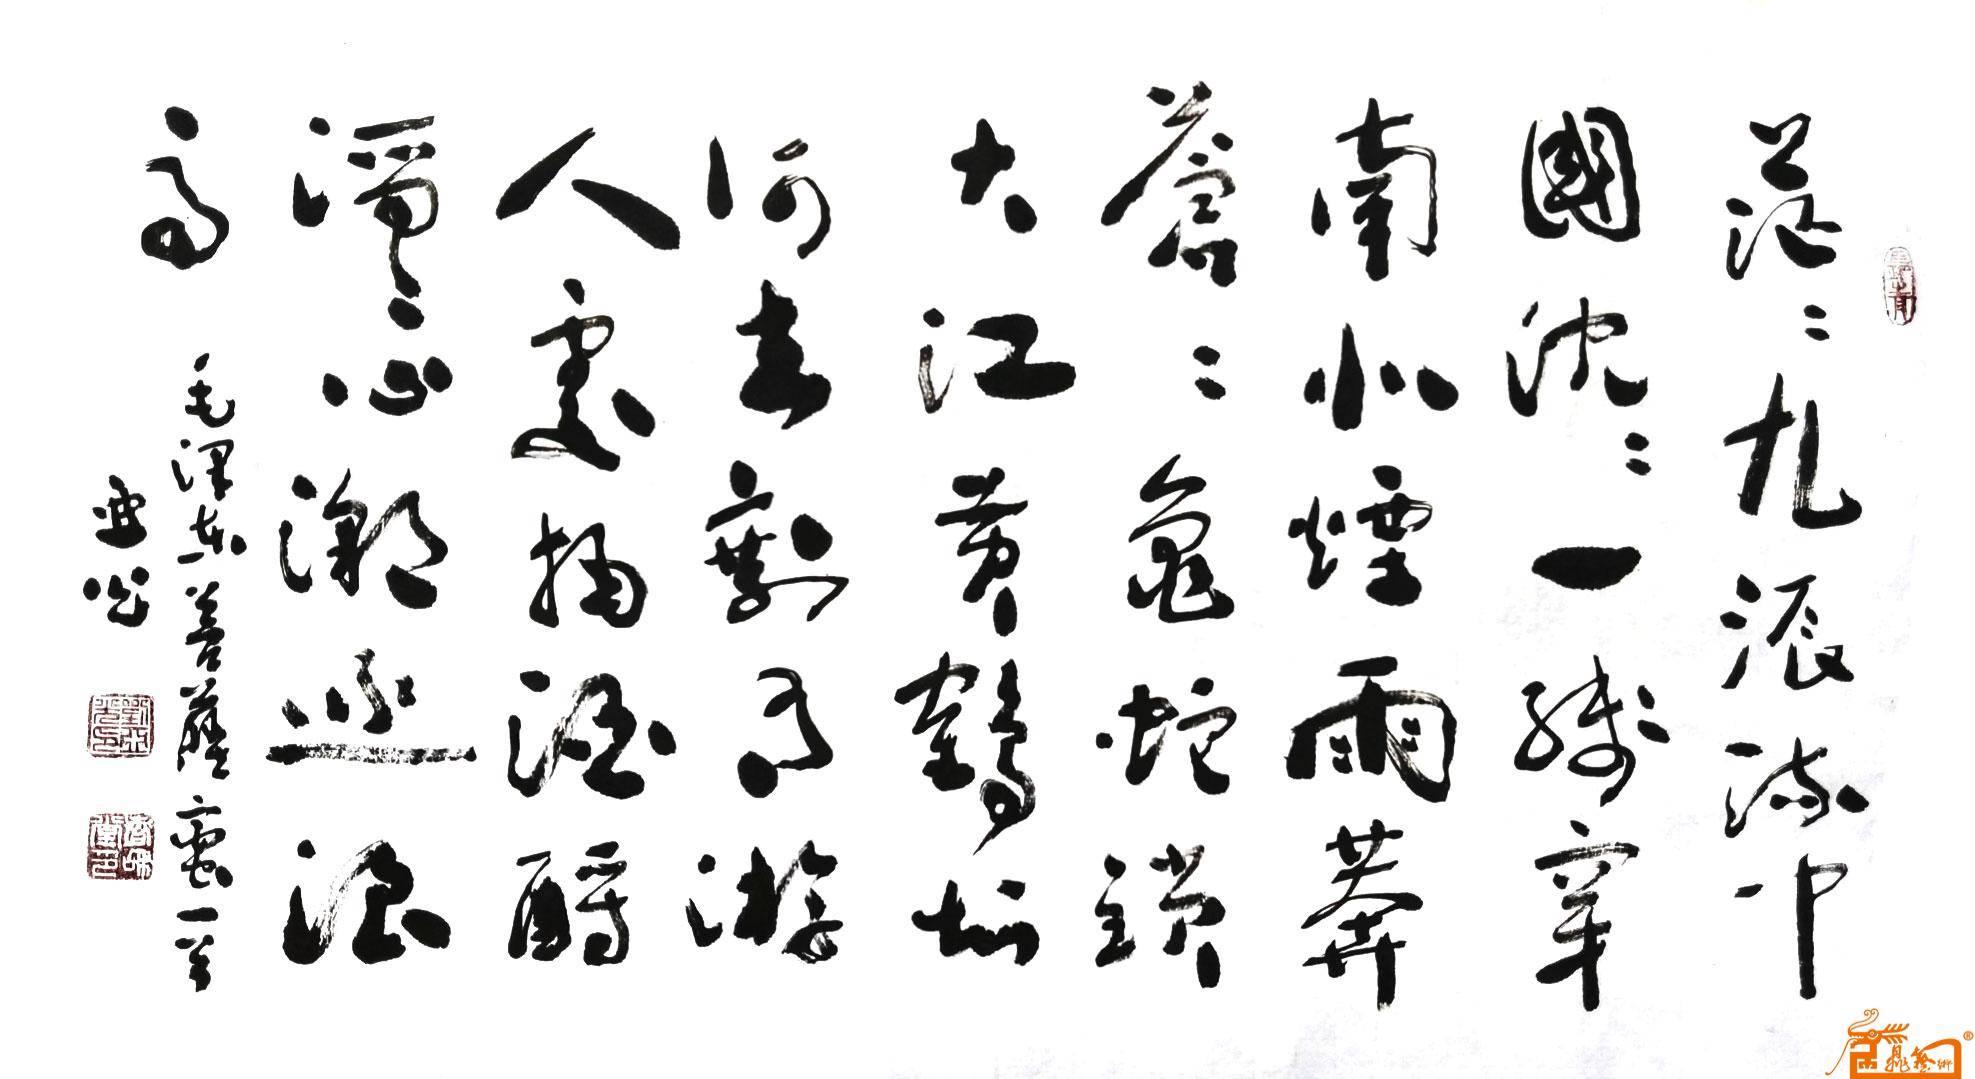 茫〻九派流中
國沈〻一綫穿
南北煙雨莽
蒼〻龜蛇鎖
大江黃鶴知
何去剩有游
人處把酒酹
滔〻心潮逐浪
高
毛澤東菩薩蠻一首
亞光